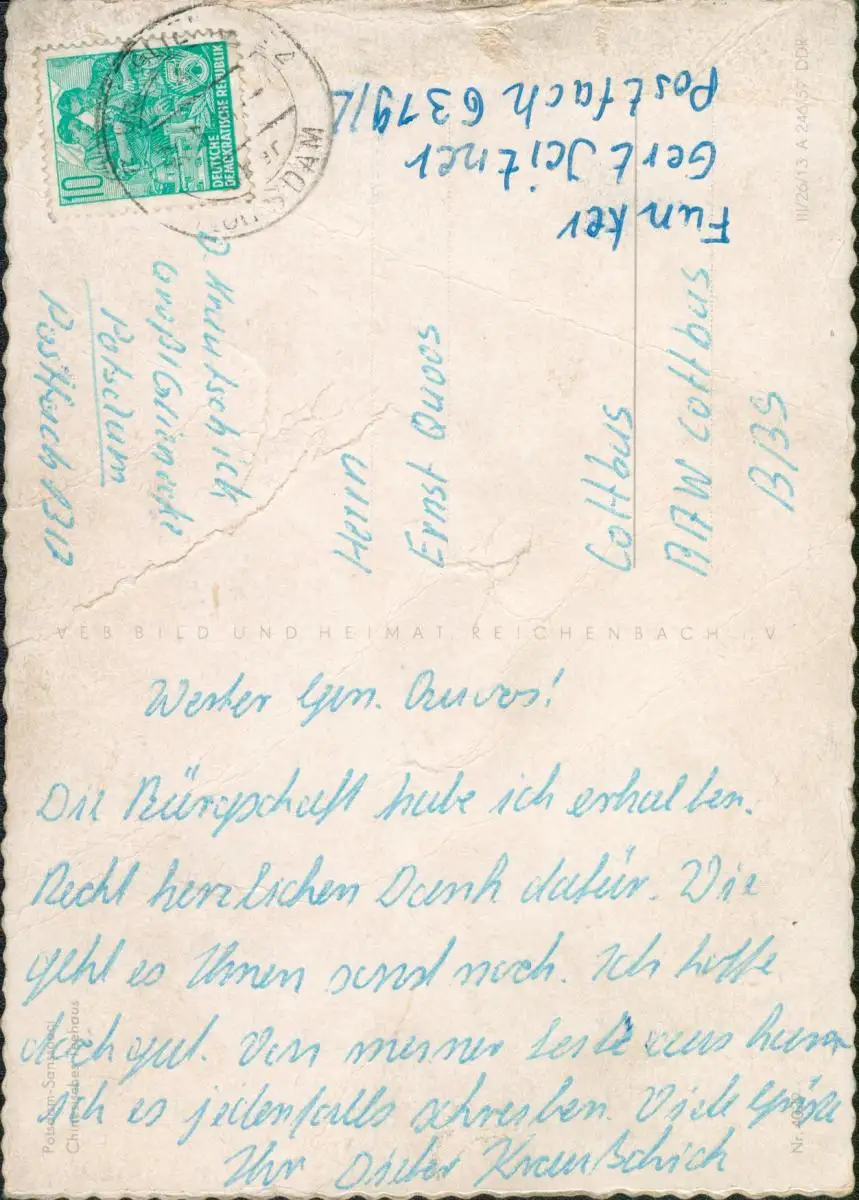 10
DEUTSCHE
DEMOKRATISCHE REPUBLIK
Funker
Gert
Postfach 6319/
D.
Groß Glienicke
Potsdam
Postfach 1310
Herrn
Ernst Quvos
Cottbus
RAW Cottbus
BBS
III/26/13 A 244/57 DDR
VEB BILD UND HEIMAT, REICHENBACH i. V.
Werter Gen. Quvos!
Die Bürgschaft habe ich erhalten.
Recht herzlichen Dank dafür. Wie
geht es Ihnen sonst noch. Ich hoffe
doch gut. Von meiner Seite aus kann
ich es jedenfalls schreiben. Viele Grüße
Ihr Dieter
Potsdam-Sanssouci
Chinesisches Teehaus